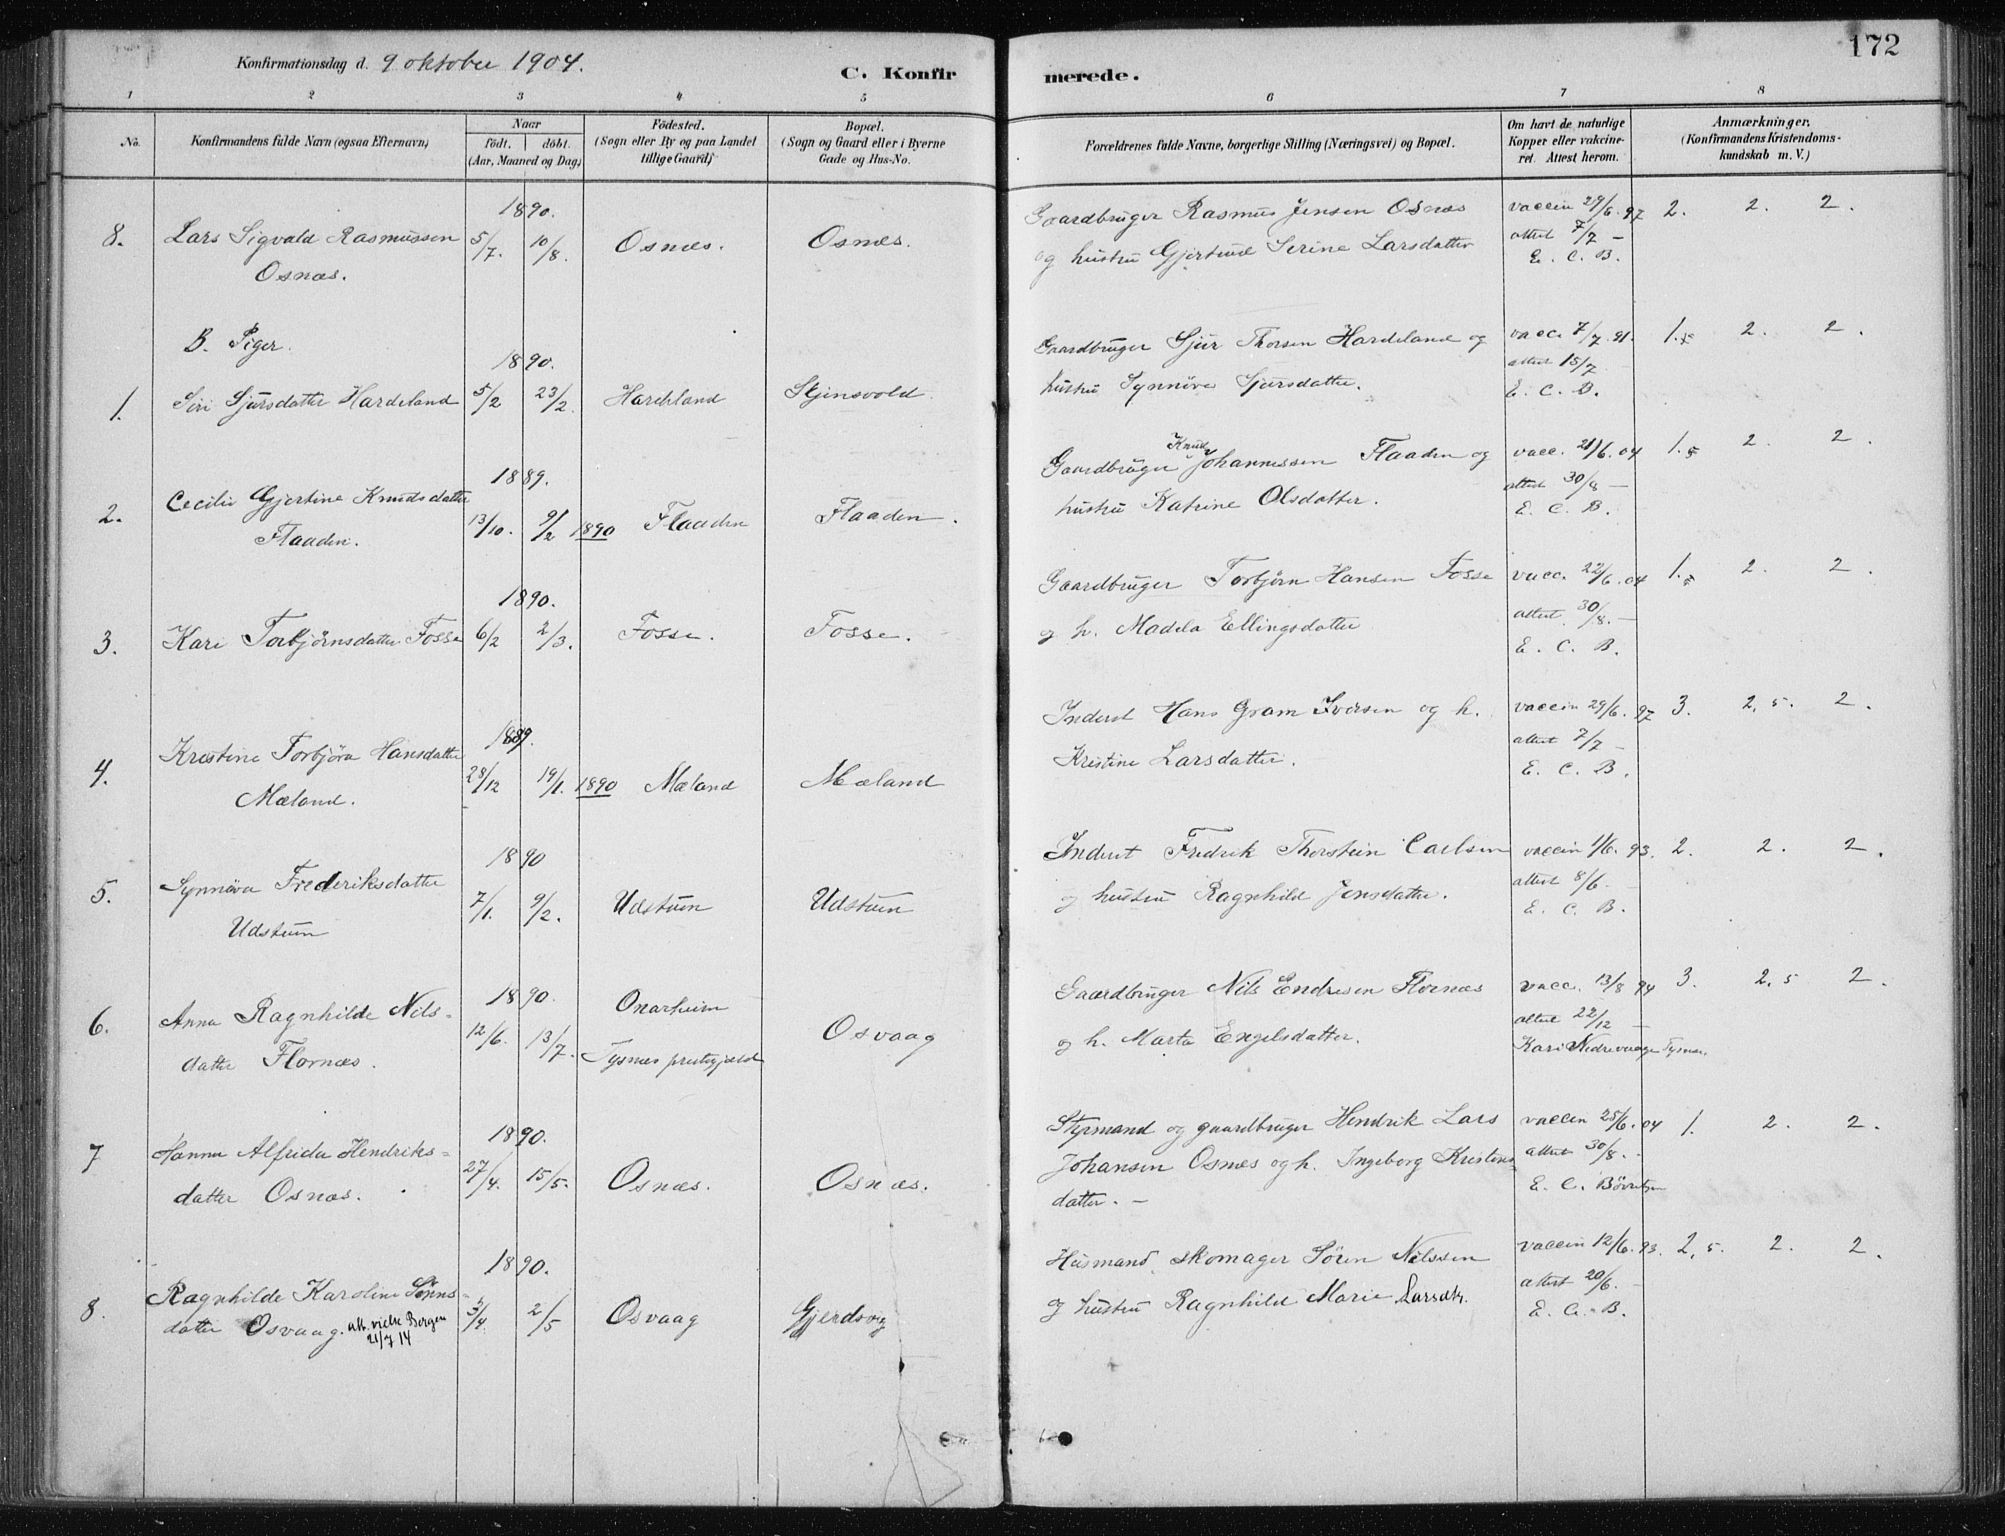 172
Konfirmationsdag d. 9 oktober 1904.
C. Konfirmerede.
1 2 3 4 5 6 7 8
No. Konfirmandens fulde Navn (ogsaa Efternavn) Naar födt. döbt. (Aar, Maaned og Dag) Födested. (Sogn eller By og paa Landet tillige Gaard) Bopæl. (Sogn og Gaard eller i Byerne Gade og Hus-No. Forældrenes fulde Navne, borgerlige Stilling (Næringsvei) og Bopæl. Om havt de naturlige Kopper eller vakcineret. Attest herom. Anmærkninger. (Konfirmandens Kristendomskundskab m. V.)
1890.
8. Lars Sigvald Rasmussen 5/7. 10/8. Osnæs. Osnæs. Gaardbruger Rasmus Jensen Osnæs vaccin 29/6.97 2. 2. 2.
Osnæs. og hustru Gjertrud Serine Larsdatter attest 7/7 –
E. C. B.
B. Piger.
1890.
1. Siri Sjursdatter Hardeland 5/2 23/2. Hardeland Skjensvold. Gaardbruger Sjur Thorsen Hardeland og vacc. 7/7.91. 1. 2. 2.
hustru Synnöve Sjursdatter. attest 15/7
E. C. B.
1889.
2. Cecilie Gjertine Knudsdatter 13/10. 9/2 1890 Flaaden Flaaden. Gaardbruger Knud Johannessen Flaaden og vacc. 21/6.04 1.5 2. 2.
Flaaden. hustru Katrine Olsdatter. attest 30/8 –
E. C. B.
1890.
3. Kari Torbjörnsdatter Fosse 6/2 2/3. Fosse. Fosse. Gaardbruger Torbjörn Hansen Fosse vacc. 22/6.04 1. 2. 2.
og h. Madela Ellingsdatter attest 30/8. –
E. C. B.
1889.
4. Kristine Torbjöra Hansdatter 28/12 19/1. 1890 Mæland Mæland Inderst Hans Gram Iversen og h. vaccin 29/6.97 3. 2,5. 2.
Mæland. Kristine Larsdatter. attest 7/7 –
E. C. B.
1890
5. Synnöva Frederiksdatter 7/1. 9/2. Udstuen Udstuen Inderst Fredrik Thorstein Carlsen vaccin 1/6.93. 2. 2. 2.
Udstuen og hustru Ragnhild Jensdatter. attest 8/6 –
E. C. B.
1890.
6. Anna Ragnhilde Nils- 12/6. 13/7. Onarheim Osvaag Gaardbruger Nils Endresen Flornæs vacc. 13/8 94 3. 2,5 2.
datter Flornæs. Tysnæs prestegjæld og h. Marta Engelsdatter. attest 22/12 –
Kari Nedrevaage Tysnæs.
1890.
7 Hanna Alfrida Hendriks- 27/4. 15/5. Osnæs. Osnæs. Styrmand og gaardbruger Hendrik Lars vaccin 25/6.04 1. 2. 2.
datter Osnæs. Johansen Osnæs og h. Ingeborg Kristens- attest 30/8. –
datter. – E. C.
1890.
8. Ragnhilde Karoline Sörens- 3/4. 2/5 Osvaag Gjerdsvig Husmand, skomager Sören Nilssen vaccin 12/6.93. 2,5. 2. 2.
datter Osvaag. att. vielse Bergen 21/7 14 og hustru Ragnhild Marie Larsdtr. attest 20/6. –
E. C. B.